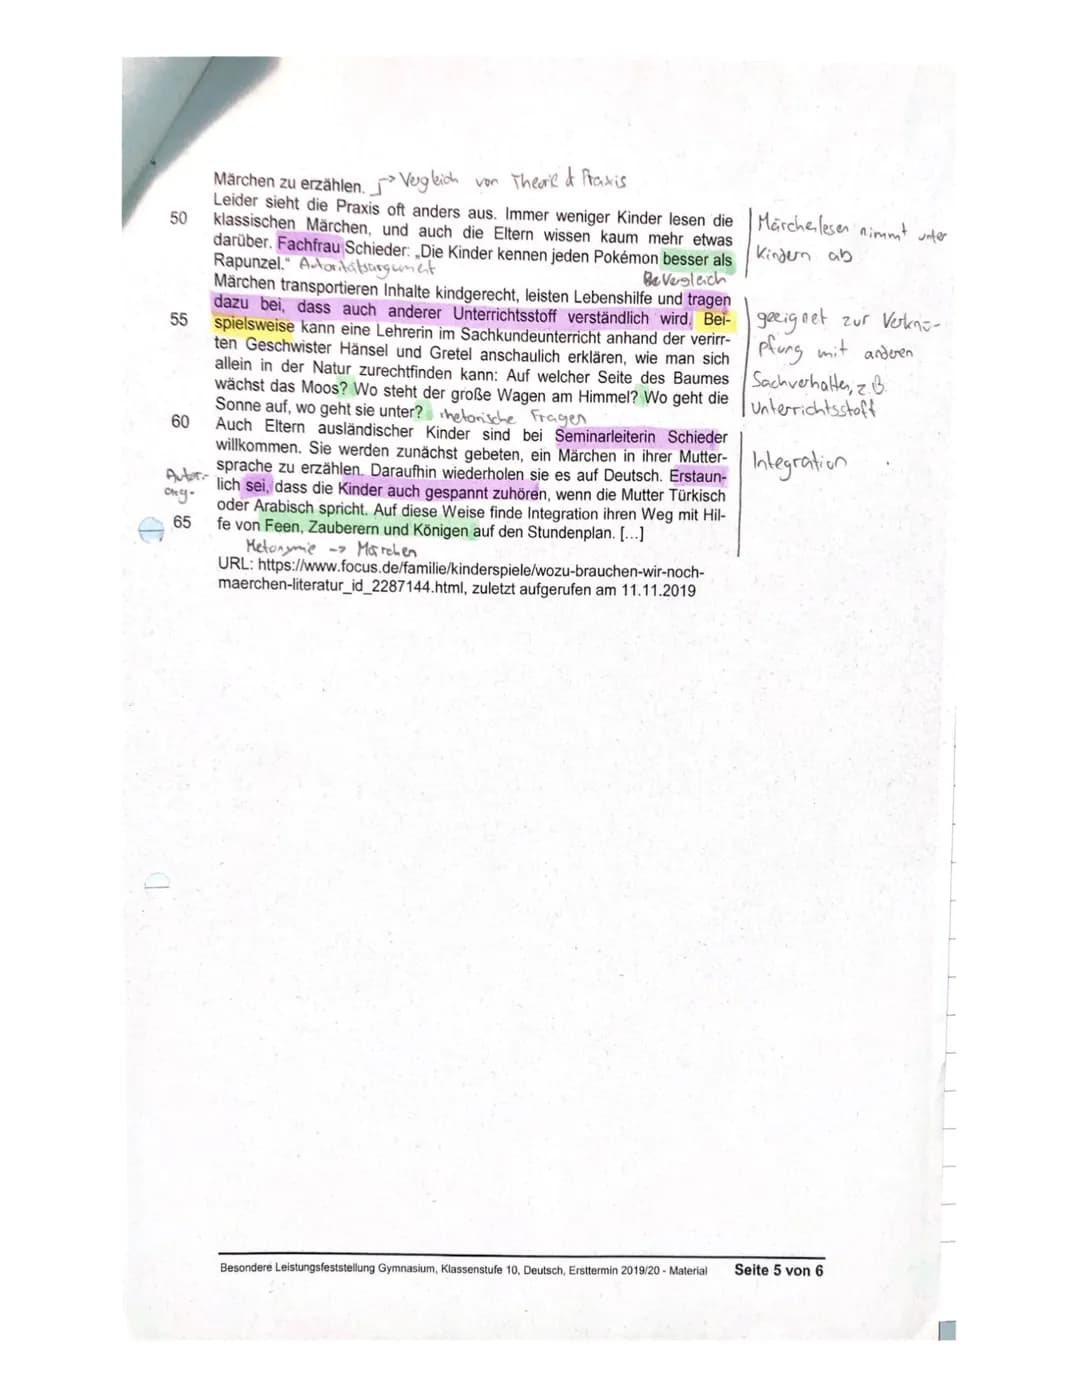 Märchen zu erzählen. → Vergleich von Theorie & Praxis
Leider sieht die Praxis oft anders aus. Immer weniger Kinder lesen die
50 klassischen Märchen, und auch die Eltern wissen kaum mehr etwas
darüber. Fachfrau Schieder: „Die Kinder kennen jeden Pokémon besser als
Rapunzel." Autoritätsargument Vergleich
Märchenlesen nimmt unter
Kindern ab
Märchen transportieren Inhalte kindgerecht, leisten Lebenshilfe und tragen
dazu bei, dass auch anderer Unterrichtsstoff verständlich wird. Bei-
55 spielsweise kann eine Lehrerin im Sachkundeunterricht anhand der verirr-
ten Geschwister Hänsel und Gretel anschaulich erklären, wie man sich
allein in der Natur zurechtfinden kann: Auf welcher Seite des Baumes
wächst das Moos? Wo steht der große Wagen am Himmel? Wo geht die
Sonne auf, wo geht sie unter? rhetorische Fragen
geeignet zur Verknü-
pfung mit anderen
Sachverhalten, z.B.
Unterrichtsstoff
60 Auch Eltern ausländischer Kinder sind bei Seminarleiterin Schieder
willkommen. Sie werden zunächst gebeten, ein Märchen in ihrer Mutter-
sprache zu erzählen. Daraufhin wiederholen sie es auf Deutsch. Erstaun-
lich sei, dass die Kinder auch gespannt zuhören, wenn die Mutter Türkisch
oder Arabisch spricht. Auf diese Weise finde Integration ihren Weg mit Hil-
65 fe von Feen, Zauberern und Königen auf den Stundenplan. [...]
Integration
Metonymie -> Märchen
URL: https://www.focus.de/familie/kinderspiele/wozu-brauchen-wir-noch-
maerchen-literatur_id_2287144.html, zuletzt aufgerufen am 11.11.2019
Besondere Leistungsfeststellung Gymnasium, Klassenstufe 10, Deutsch, Ersttermin 2019/20 - Material Seite 5 von 6